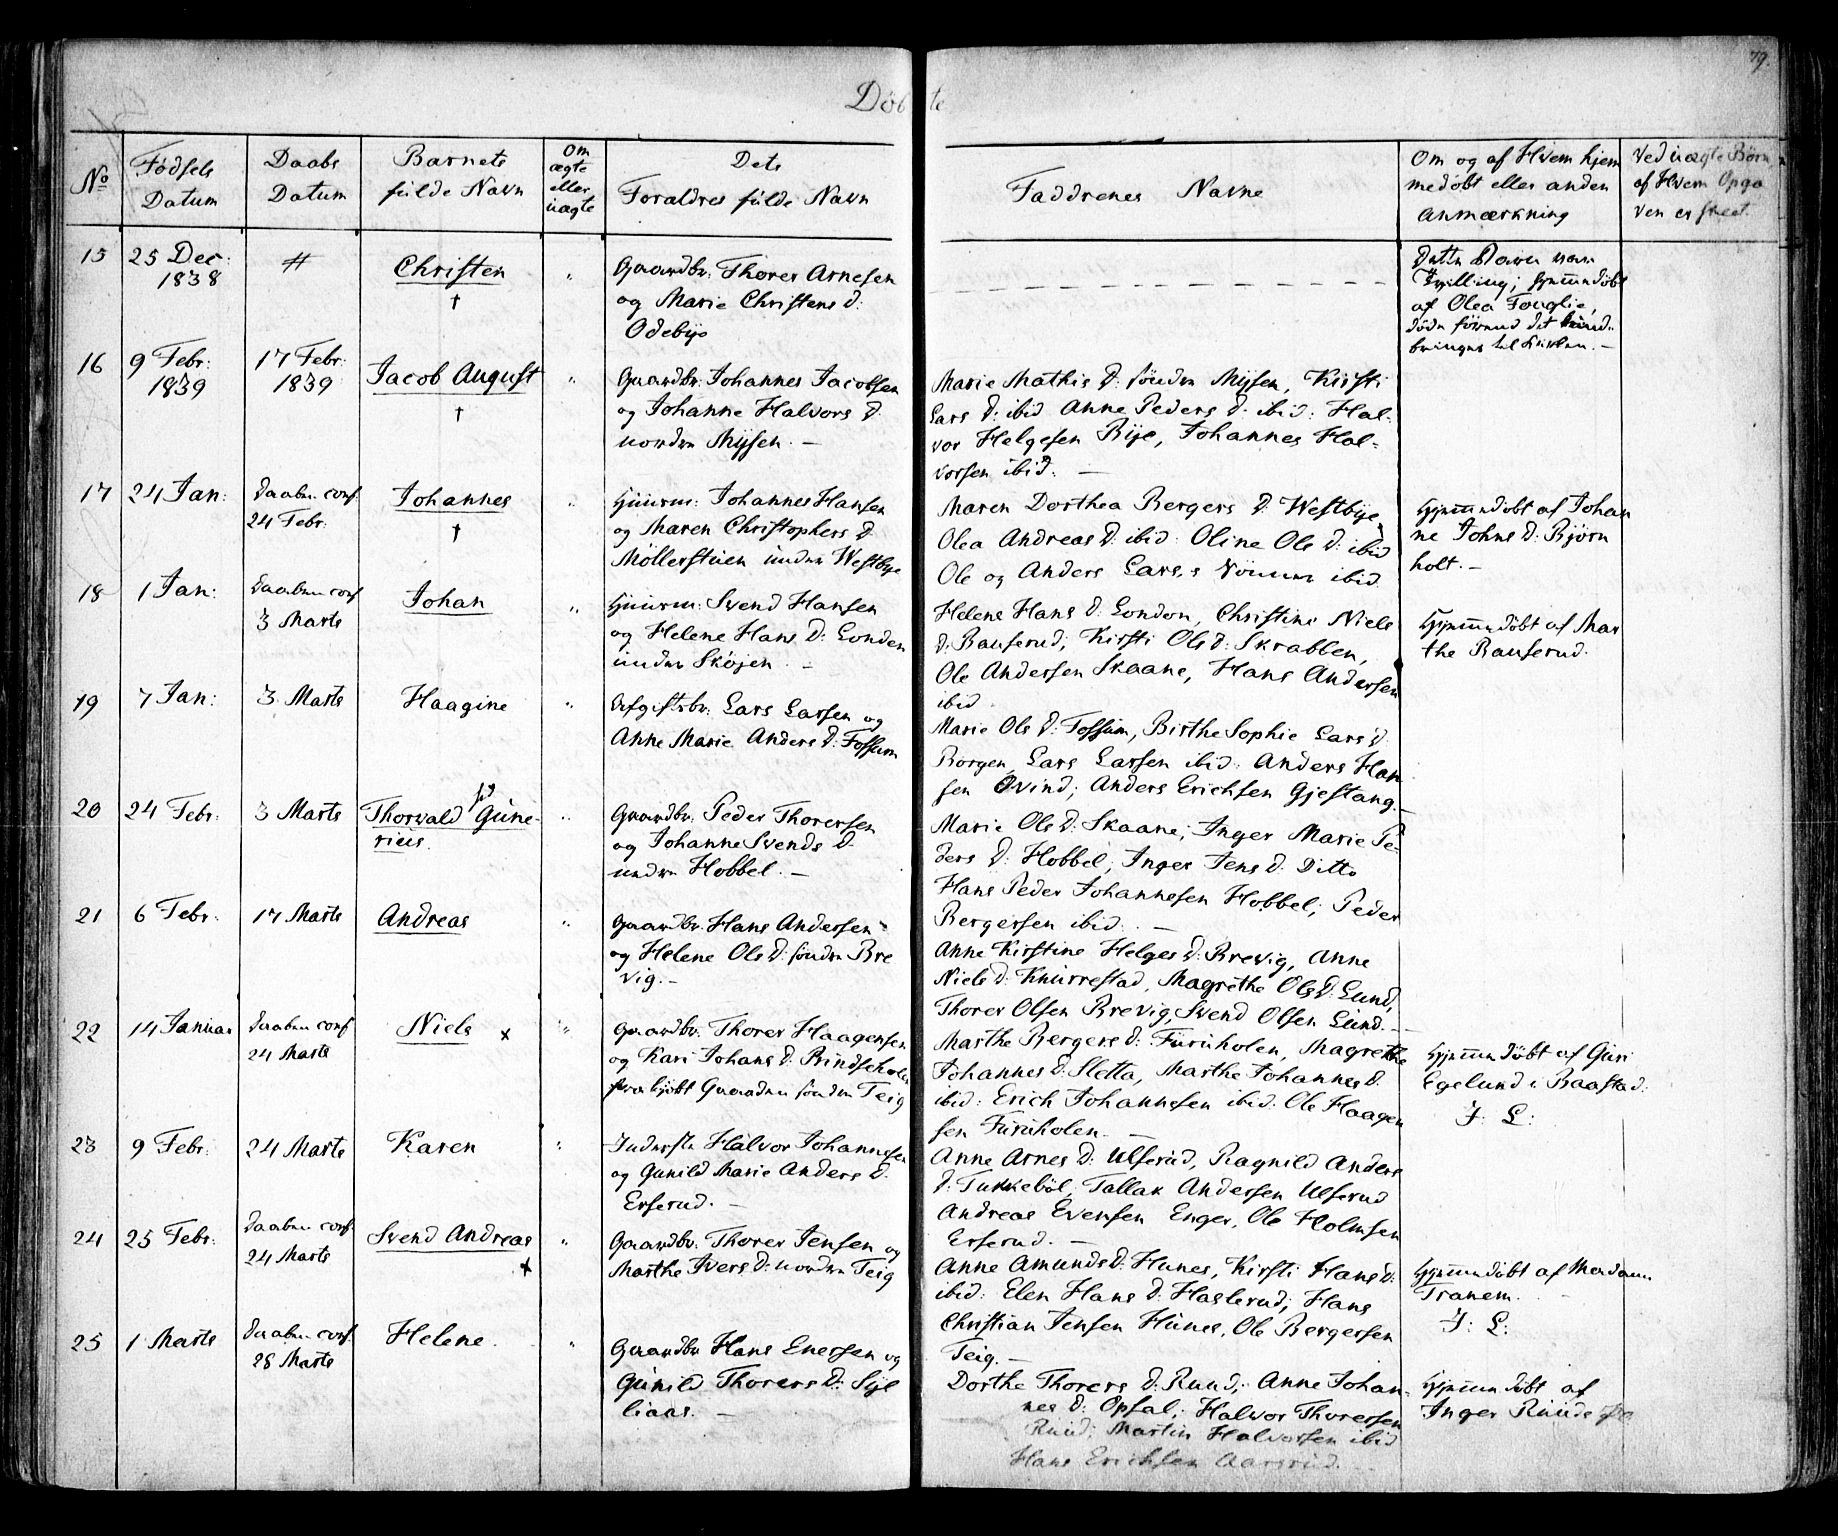 79.
Døbte
No
Fødsels
Datum
Daabs
Datum
Barnets
fulde Navn
Om
ægte
eller
uægte
Dets
Forældres fulde Navn
Faddrenes Navne
Om og af Hvem hjem
medøbt eller anden
Anmærkning
Ved uægte Børn
af Hvem Opga
ven er skeet.
15
25 Dec:
1838
#
Christen
†
"
Gaardbr: Thorer Arnesen
og Marie Christens D:
Odebye
Dette Barn var
Tvilling; hjemmedøbt
af Olea Fouglie,
døde førend det kunde
bringes til Kirken. -
16
9 Febr:
1839
17 Febr:
1839
Jacob August
†
"
Gaardbr: Johannes Jacobsen
og Johanne Halvors D:
nordre Mysen. -
Marie Mathis D: søndre Mysen, Kirsti
Lars D: ibid Anne Peders D: ibid: Hal-
vor Helgesen Bye, Johannes Hal-
vorsen ibid. -
17
24 Jan:
Daaben conf.
24 Febr:
Johannes
†
"
Huusm: Johannes Hansen
og Maren Christophers D:
Møllerstuen under Westbye
Maren Dorthea Bergers D: Westbye,
Olea Andreas D: ibid: Oline Ols D: ibid
Ole og Anders Lars,s Sønner ibid
Hjemmedøbt af Johan
ne Johns D: Bjørn
holt. -
18
1 Jan:
Daaben conf
3 Marts
Johan
"
Huusm: Svend Hansen
og Helene Hans D: London
under Skøjen. -
Helene Hans D: London, Christine Niels
D: Bauserud, Kirsti Ols D: Skrabben,
Ole Andersen Skaane, Hans Andersen
ibid
Hjemmedøbt af Mar
the Bauserud.
19
7 Jan:
3 Marts
Haagine
"
Afgiftsbr: Lars Larsen og
Anne Marie Anders D: Fossum
Marie Ols D: Fossum, Birthe Sophie Lars D:
Borgen, Lars Larsen ibid: Anders Han
sen Øvind, Anders Erichsen Gjestang. -
20
24 Febr:
3 Marts
Thorvald Gune-
rius.
"
Gaardbr: Peder Thorersen
og Johanne Svends D:
nedre Hobbel. -
Marie Ols D: Skaane, Inger Marie Pe-
ders D: Hobbel, Inger Jens D: Ditto
Hans Peder Johannesen Hobbel, Peder
Bergersen ibid. -
21
6 Febr:
17 Marts
Andreas
"
Gaardbr: Hans Andersen
og Helene Ols D: søndre Bre
vig. -
Anne Kirstine Helges D: Brevig, Anne
Niels D: Knurrestad, Magrethe Ols D: Lund,
Thorer Olsen Brevig, Svend Olsen Lund. -
22
14 Januar
Daaben conf
24 Marts
Niels x
"
Gaardbr: Thorer Haagensen
og Kari Johans D: Bindseholen
fra kjøbt Gaarden søndre Teig
Marthe Bergers D: Furuholen, Magrethe
Johannes D: Sletta, Marthe Johannes D:
ibid: Erich Johannesen ibid: Ole Haagen
sen Furuholen. -
Hjemmedøbt af Guri
Egelund i Baastad.
I: L:
23
9 Febr:
24 Marts
Karen
"
Inderste Halvor Johannesen
og Gunild Marie Anders D:
Erserud. -
Anne Arnes D: Ulserud, Ragnild Anders
D: Tukkebøl, Tallak Andersen Ulserud
Andreas Evensen Enger, Ole Holmsen
Erserud. -
24
25 Febr:
Daaben conf
24 Marts
Svend Andreas
x
"
Gaardbr: Thorer Jensen og
Marthe Ivers D: nordre Teig
Anne Amunds D: Hunes, Kirsti Hans D:
ibid: Elen Hans D: Haslerud, Hans
Christian Jensen Hunes, Ole Bergersen
Teig. -
Hjemmedøbt af Madam
Tranem.
I: L:
25
1 Marts
Daaben conf
28 Marts
Helene.
"
Gaardbr Hans Enersen og
Gunild Thorers D: Syl
liaas. -
Dorthe Thorers D: Ruud, Anne Johan-
nes D: Opsal, Halvor Thorersen
Ruud, Martin Halvorsen ibid
Hans Erichsen Aarsrud. -
Hjemmedøbt af
Inger Ruuds